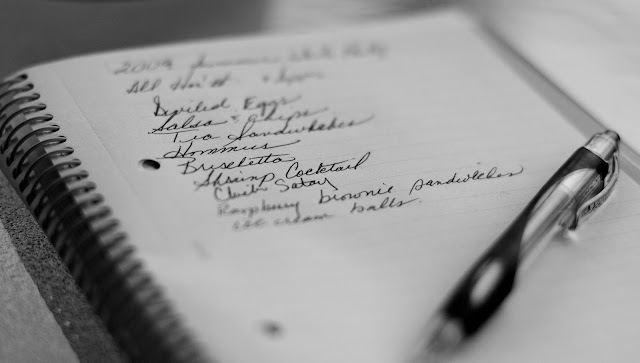 2009 Summer White Party
All Hors'
Deviled Eggs
Salsa & Chips
Tea Sandwhches
Hommus
Brisletta
Shrimp Cocktail
Satay
Raspberry brownie sandwiches
ice cream balls.